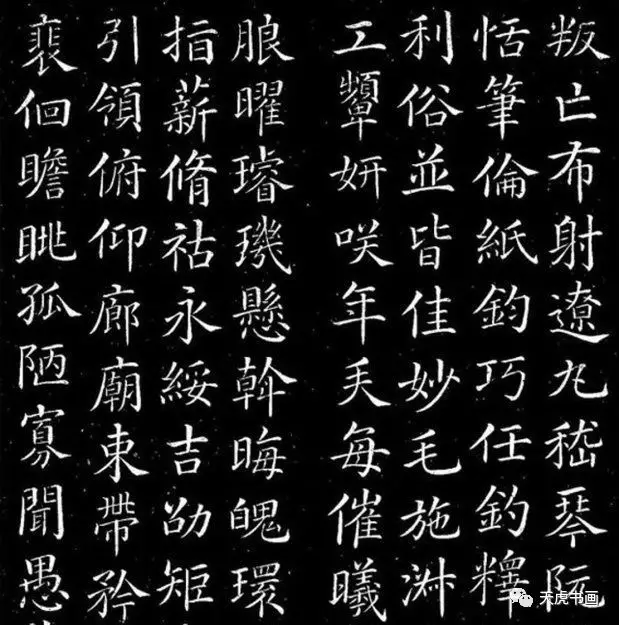 叛亡布射遼丸嵇琴阮
恬筆倫紙鈞巧任釣釋
利俗並皆佳妙毛施淑
工顰妍咲年矢每催曦
朖曜璿璣懸斡晦魄環
指薪脩祜永綏吉劭矩
引領俯仰廊廟束帶矜
裵佪瞻眺孤陋寡聞愚
天虎书画